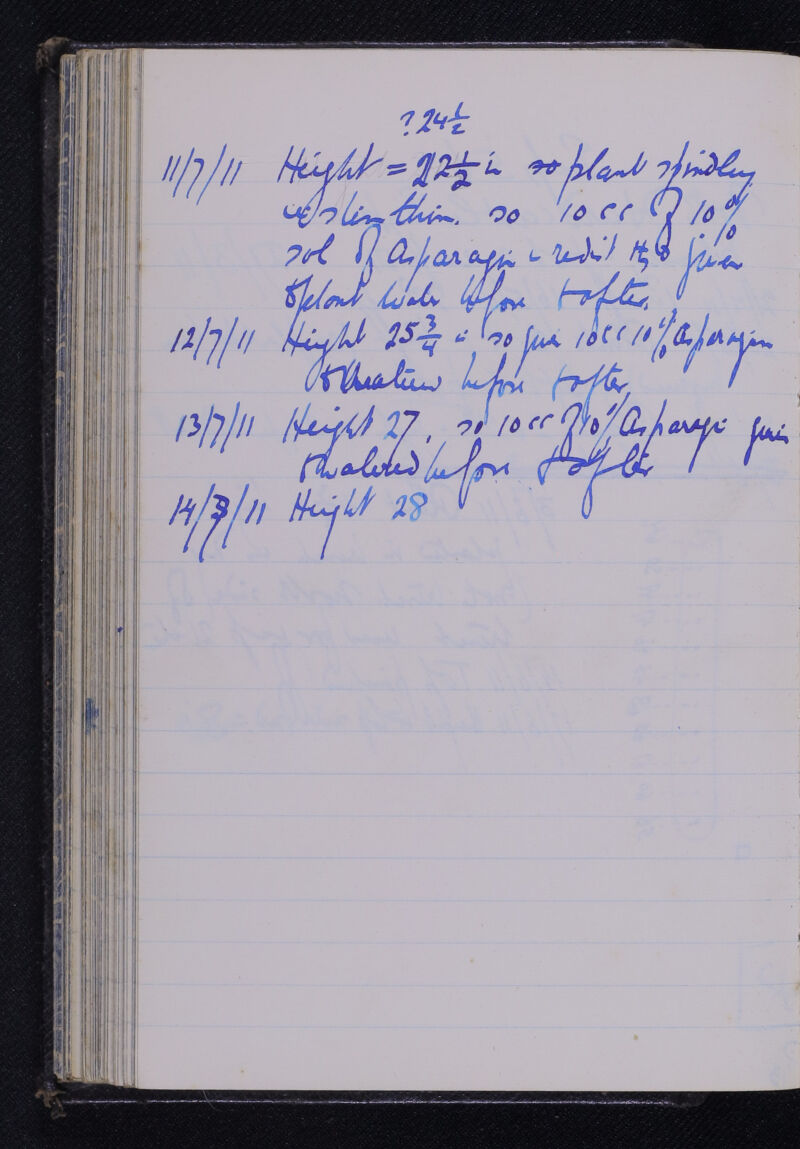 ? 24 1/2
11/7/11 Height = 22 1/2 in so plant spindley
stem thin. so 10 cc of 10%
sol of Asparagin in redist H2O given
& plant water before & after.
12/7/11 Height 25 3/4 in so give 10cc 10% Asparagin
& before & after,
13/7/11 Height 27, so 10 cc of 10% Asparagi given
& watered before & after
14/7/11 Height 28